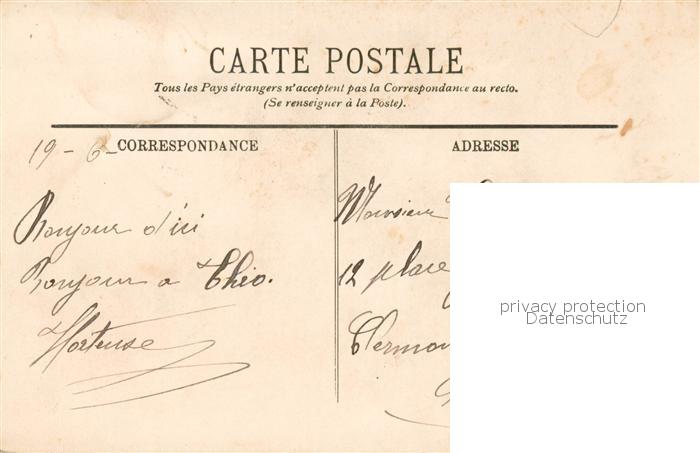 CARTE POSTALE
Tous les Pays étrangers n'acceptent pas la Correspondance au recto.
(Se renseigner à la Poste).
19 - 6 -
CORRESPONDANCE
Bonjour d'ici
Bonjour a Théo.
Hortense
ADRESSE
Monsieur
12 place
privacy protection
Datenschutz